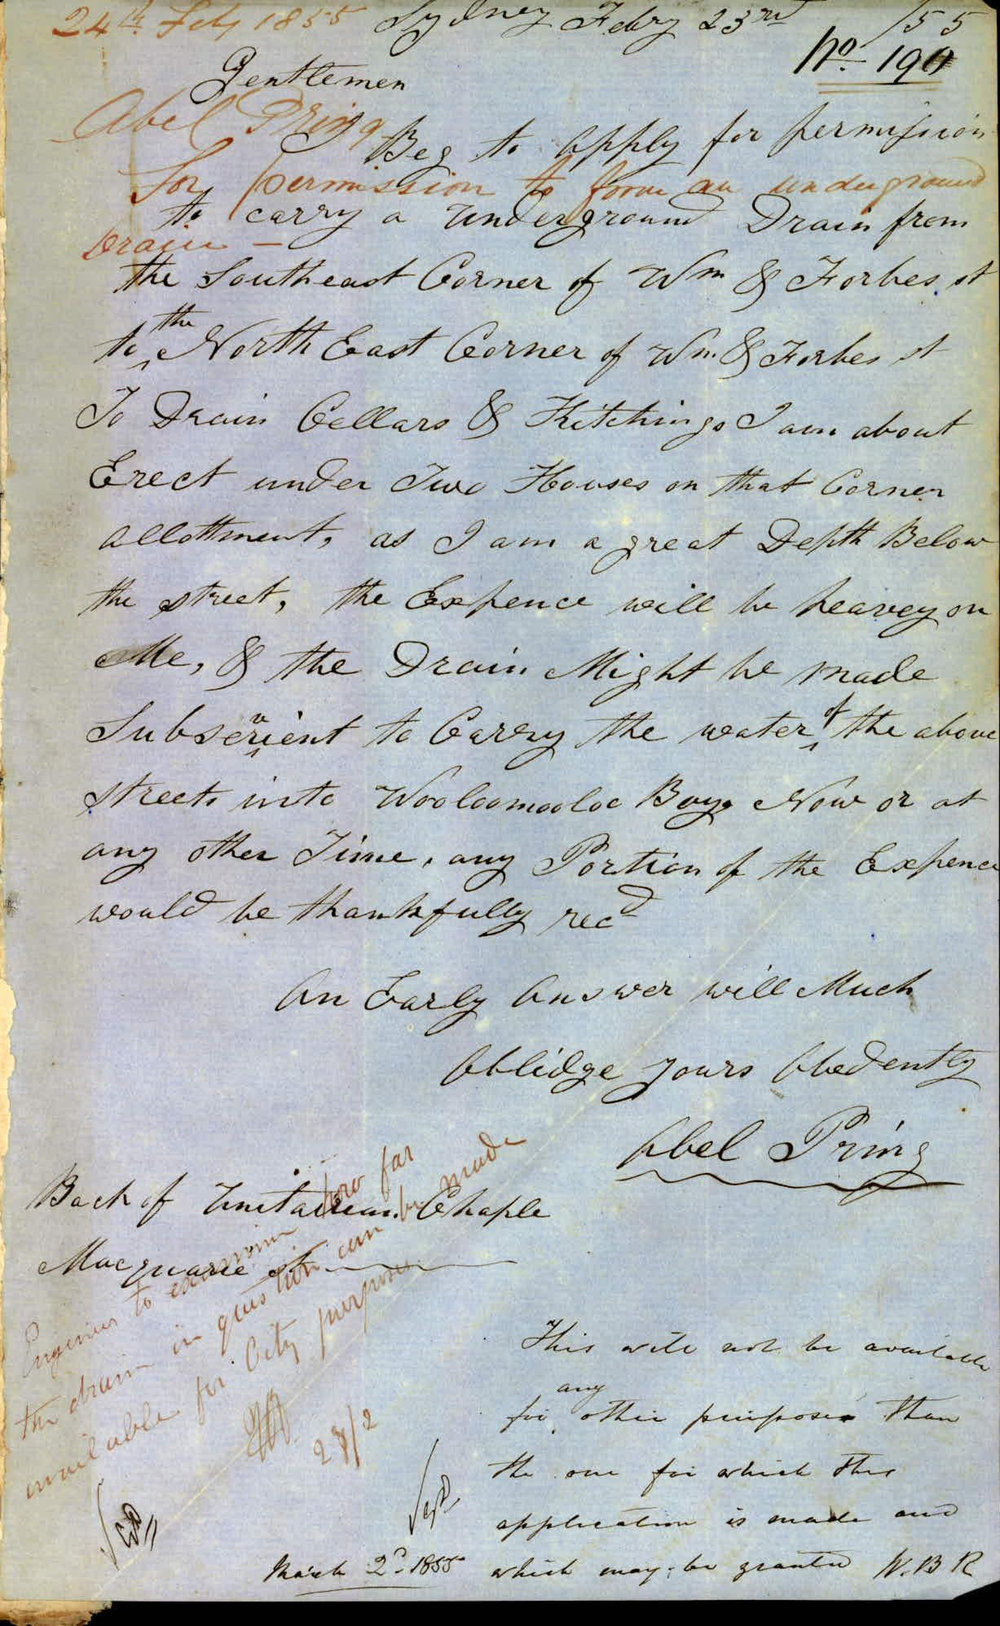 24th Feby 1855
Sydney Feby 23rd /55
No. 190
Gentlemen
Abel Pring
I Beg to apply for permission
for permission to form an underground
to carry a Underground Drain from
Drain —
the Southeast Corner of Wm & Forbes st
to the North East Corner of Wm & Forbes st
To Drain Cellars & Kitchings I am about
Erect under Two Houses on that Corner
allottment, as I am a great Depth Below
the street, the Expence will be heavey on
Me, & the Drain Might be made
Subservient to Carry the water of the above
streets into Wooloomooloo Bay. Now or at
any other Time, any Portion of the Expence
would be thankfully recd
An Early Answer will Much
Oblidge yours Obedently
Abel Pring
Back of Unitarian Chaple
Macquarie st
Engineer to examine how far
the drain in question can be made
available for City purposes
28/2
This will not be available
for any other purposes than
the one for which this
application is made and
which may be granted W.B R
March 2d 1855